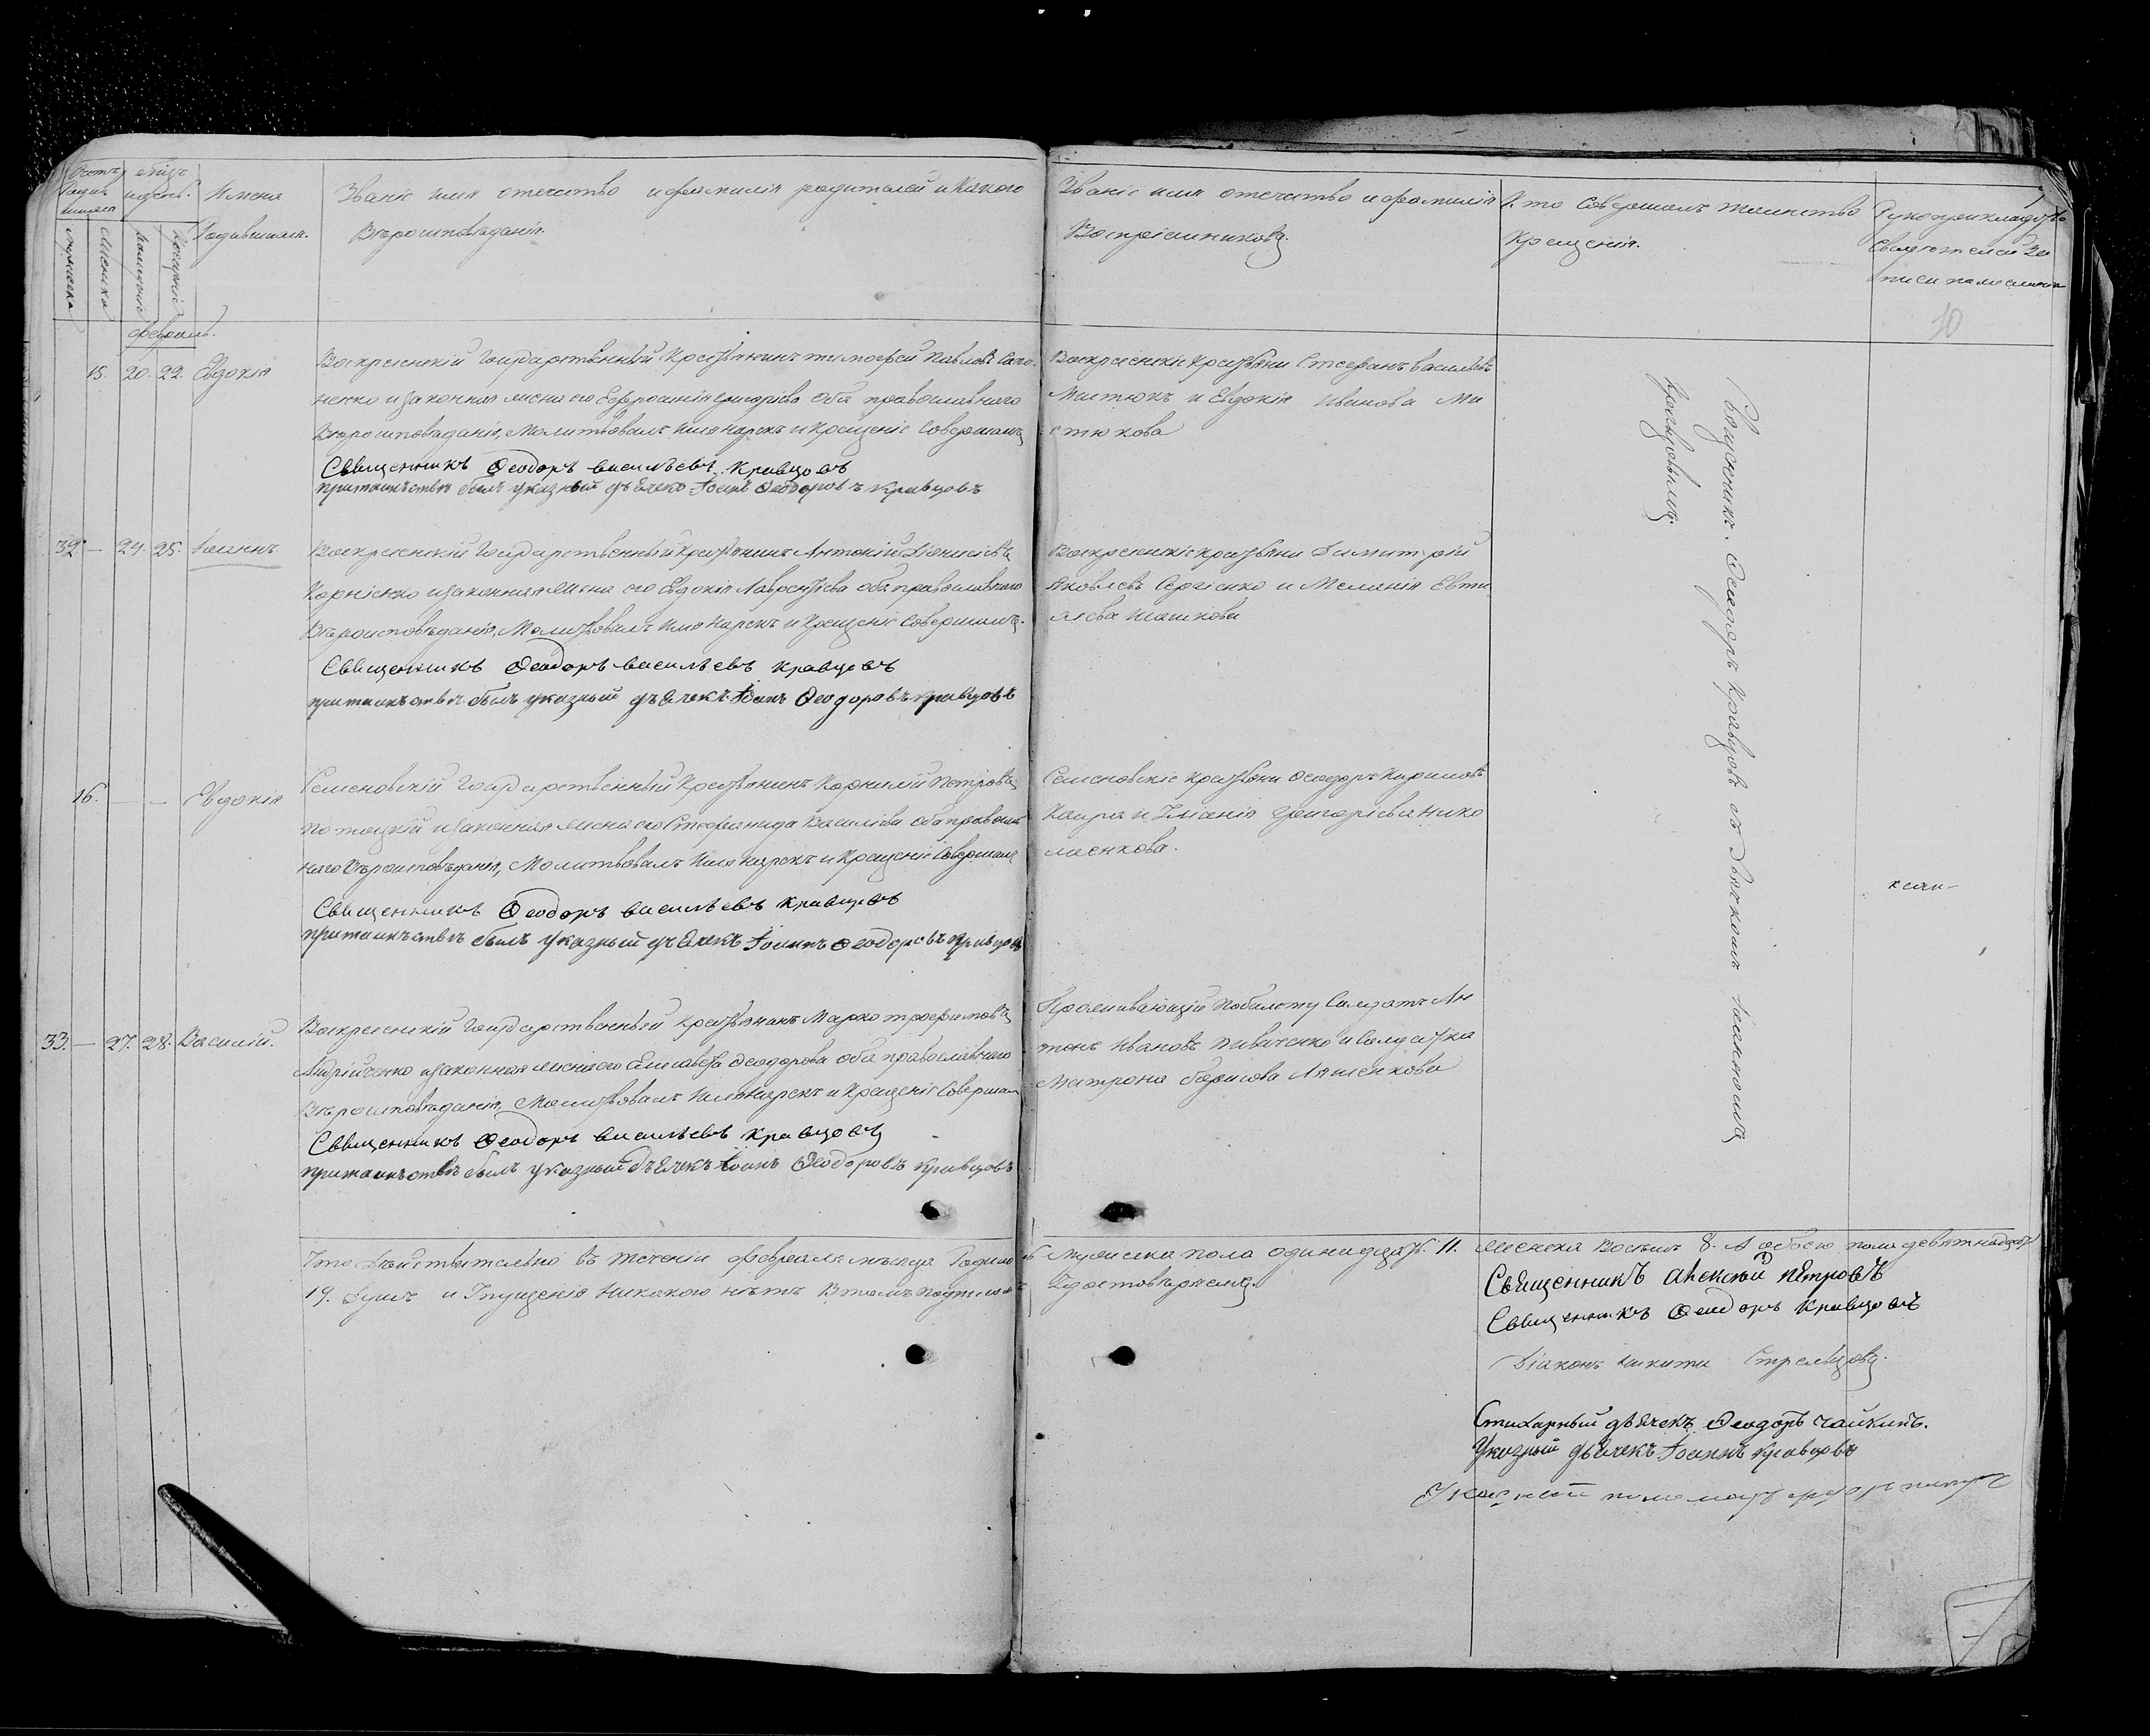 Счетъ родившихся
мѣсяцъ и день.
Имена Родившихся.
Званіе имя отечество и фамилія родителей и какого
Вѣроисповѣданія.
Званіе имя отечество и фамилія
Воспріемниковъ.
Кто Совершалъ таинство
Крещенія.
Рукоприкладство
Свидѣтелей За
писи по желанію
Мужеска
Женска
рожденіе
крещеніе
10
февраль.
15. 20. 22. Евдокія
Воскресенскій Государственный Крестьянинъ тимофей Павловъ
ненко и законная жена его Евфросинія григоріева Оба православнаго
Вѣроисповѣданія, Молитвовалъ Имя нарекъ и Крещеніе Совершалъ
Священникъ Ѳеодоръ васильевъ Кравцовъ
притаинствѣ былъ указный дьячекъ Іоанъ Ѳеодоровъ Кравцовъ
Воскресенскіе Крестьяни Стефанъ васильевъ
Мистюкъ и Евдокія Иванова Ми
стюкова
32. — 24. 25. Іоаннъ
Воскресенскій Государственный Крестьянинъ Антоній Діонисіевъ
Корніенко и законная жена его Евдокія Лаврентіева оба православнаго
Вѣроисповѣданія, Молитвовалъ Имя Нарекъ и Крещеніе Совершалъ.
Священникъ Ѳеодоръ васильевъ Кравцовъ
притаинствѣ былъ указный дьячекъ Іоанъ Ѳеодоровъ Кравцовъ
Воскресенскіе крестьяни Димитрій
Яковлевъ Сергіенко и Меланія Евти
хіева Шашкова
16. — — Евдокія
Семеновскій Государственный Крестьянинъ Корнилій Петровъ
Потоцкій и законная жена его Стефанида Василіева оба православ
наго Вѣроисповѣданія, Молитвовалъ Имя нарекъ и Крещеніе Совершалъ
Священникъ Ѳеодоръ васильевъ Кравцовъ
притаинствѣ былъ указный дьячекъ Іоаннъ Ѳеодоровъ Кравцовъ
Семеновскіе Крестьяни Ѳеодоръ Кириловъ
Каира и Уліанія григоріева Нико
лаенкова.
33. — 27. 28. Василій.
Воскресенскій Государственный Крестьянинъ Марко трофимовъ
Андрійченко и законная жена его Елисавета Ѳеодорова оба православнаго
Вѣроисповѣданія, Молитвовалъ Имя Нарекъ и Крещеніе Совершалъ
Священникъ Ѳеодоръ васильевъ Кравцовъ
притаинствѣ былъ указный дьячекъ Іоанъ Ѳеодоровъ Кравцовъ
Проживающій Побилету Салдатъ Ан
тонъ Ивановъ Пивненко и Салдатка
Матрона борисова Ляшенкова
Священникъ Ѳеодоръ Кравцовъ съ дьячкомъ Іоанномъ
Кравцовымъ.
Что дѣйствительно въ теченіи февраля мѣсяца Родилось Мужеска пола одинадцать. 11. Женска Восемь 8. А обоего пола девятнадцать
19. Душъ и Упущенія Никакого нѣтъ Втомъ подписомъ Удостовѣряемъ.
Священникъ Алексѣй Петровъ
Священникъ Ѳеодоръ Кравцовъ
Діаконъ Никита Стрельцовъ.
Стихарный дьячекъ Ѳеодоръ Чайкинъ.
Указный дьячекъ Іоаннъ Кравцовъ
Указный пономарь